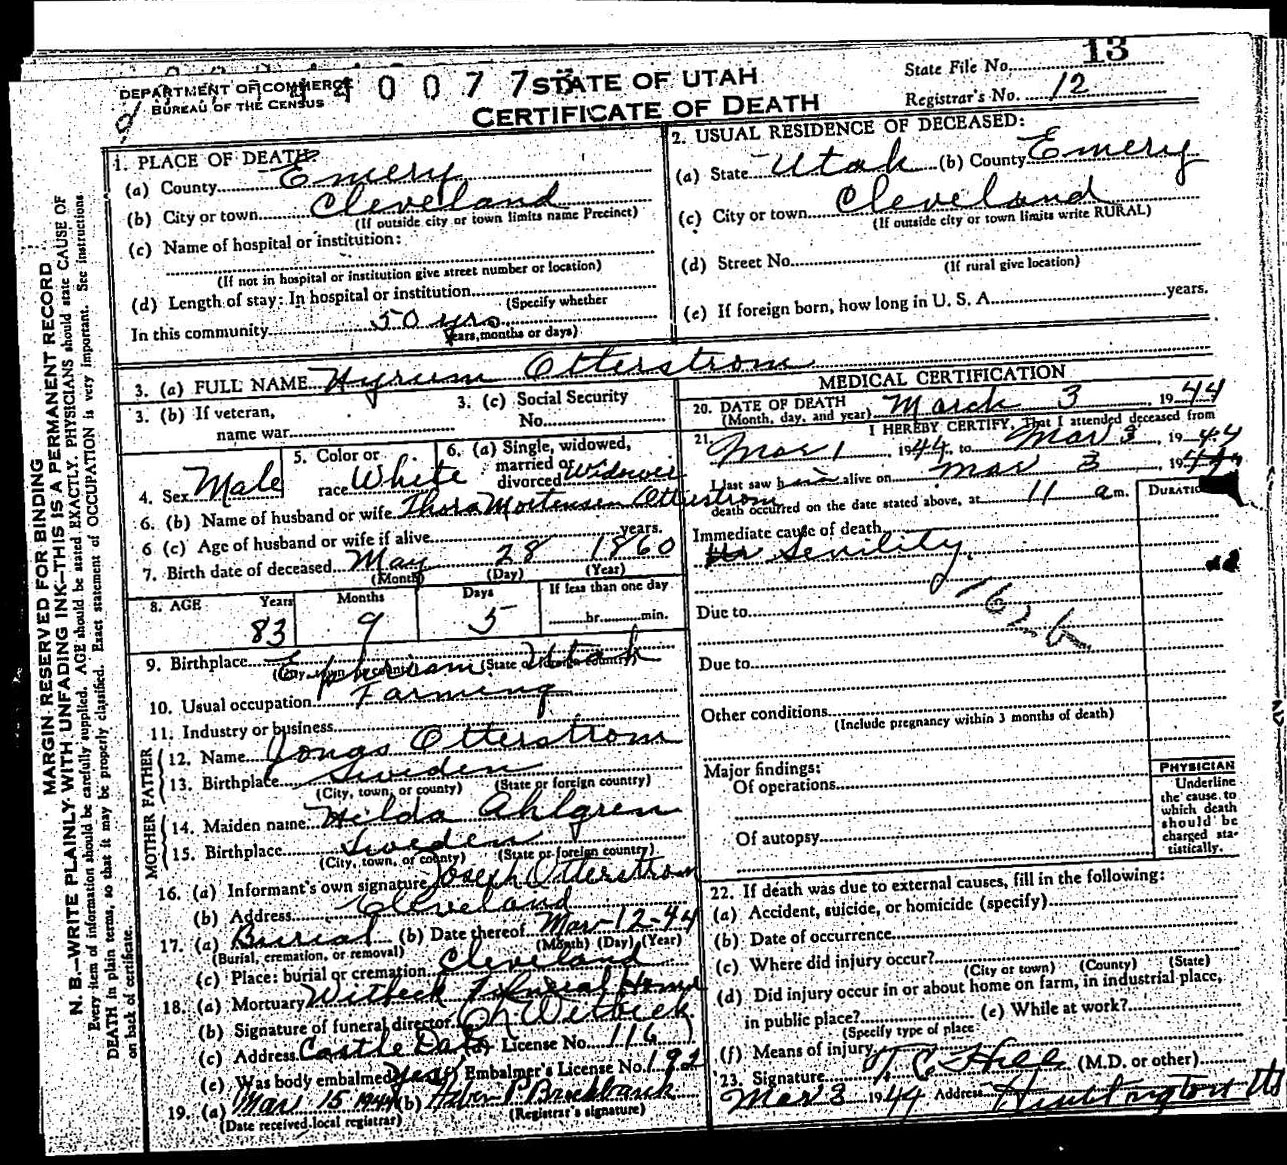 13
State File No.
DEPARTMENT OF COMMERCE
BUREAU OF THE CENSUS
0 0 7 7
STATE OF UTAH
CERTIFICATE OF DEATH
Registrar's No. 12
1. PLACE OF DEATH:
(a) County Emery
(b) City or town Cleveland
(If outside city or town limits name Precinct)
(c) Name of hospital or institution:
(If not in hospital or institution give street number or location)
(d) Length of stay: In hospital or institution
(Specify whether
In this community 50 yrs.
years, months or days)
2. USUAL RESIDENCE OF DECEASED:
(a) State Utah (b) County Emery
(c) City or town Cleveland
(If outside city or town limits write RURAL)
(d) Street No.
(If rural give location)
(e) If foreign born, how long in U. S. A. years.
3. (a) FULL NAME Hyrum Otterstrom
3. (b) If veteran,
name war
3. (c) Social Security
No.
4. Sex Male
5. Color or
race White
6. (a) Single, widowed,
married or
divorced
6. (b) Name of husband or wife Thora Mortensen Otterstrom
6 (c) Age of husband or wife if alive years.
7. Birth date of deceased May 28 1860
(Month) (Day) (Year)
8. AGE Years Months Days If less than one day
83 9 5 hr. min.
9. Birthplace Ephriam Utah
10. Usual occupation Farming
11. Industry or business
FATHER
12. Name Jonas Otterstrom
13. Birthplace Sweden
(City, town, or county) (State or foreign country)
MOTHER
14. Maiden name Hilda Ahlgren
15. Birthplace Sweden
(City, town, or county) (State or foreign country)
16. (a) Informant's own signature Joseph Otterstrom
(b) Address Cleveland
17. (a) Burial (b) Date thereof Mar-12-44
(Burial, cremation, or removal) (Month) (Day) (Year)
(c) Place: burial or cremation Cleveland
18. (a) Mortuary Witbeck Funeral Home
(b) Signature of funeral director Witbeck
(c) Address Castle Dale (d) License No. 116
(e) Was body embalmed yes Embalmer's License No. 192
19. (a) Mar 15 1944 (b) P. Brockbank
(Date received local registrar) (Registrar's signature)
MEDICAL CERTIFICATION
20. DATE OF DEATH
(Month, day, and year) March 3 1944
21. I HEREBY CERTIFY, That I attended deceased from
Mar 1 1944, to Mar 3, 1944
I last saw him alive on Mar 3 1944
death occurred on the date stated above, at 11 a m.
DURATION
Immediate cause of death
Senility
162b
Due to
Due to
Other conditions
(Include pregnancy within 3 months of death)
Major findings:
Of operations
Of autopsy
PHYSICIAN
Underline
the cause to
which death
should be
charged sta-
tistically.
22. If death was due to external causes, fill in the following:
(a) Accident, suicide, or homicide (specify)
(b) Date of occurrence
(c) Where did injury occur?
(City or town) (County) (State)
(d) Did injury occur in or about home on farm, in industrial place,
in public place? (e) While at work?
(Specify type of place
(f) Means of injury
23. Signature T. C. Hill (M.D. or other)
Mar 3 1944 Address Huntington Ut
MARGIN RESERVED FOR BINDING
N. B.—WRITE PLAINLY WITH UNFADING INK—THIS IS A PERMANENT RECORD
Every item of information should be carefully supplied. AGE should be stated EXACTLY. PHYSICIANS should state CAUSE OF
DEATH in plain terms, so that it may be properly classified. Exact statement of OCCUPATION is very important. See instructions
on back of certificate.